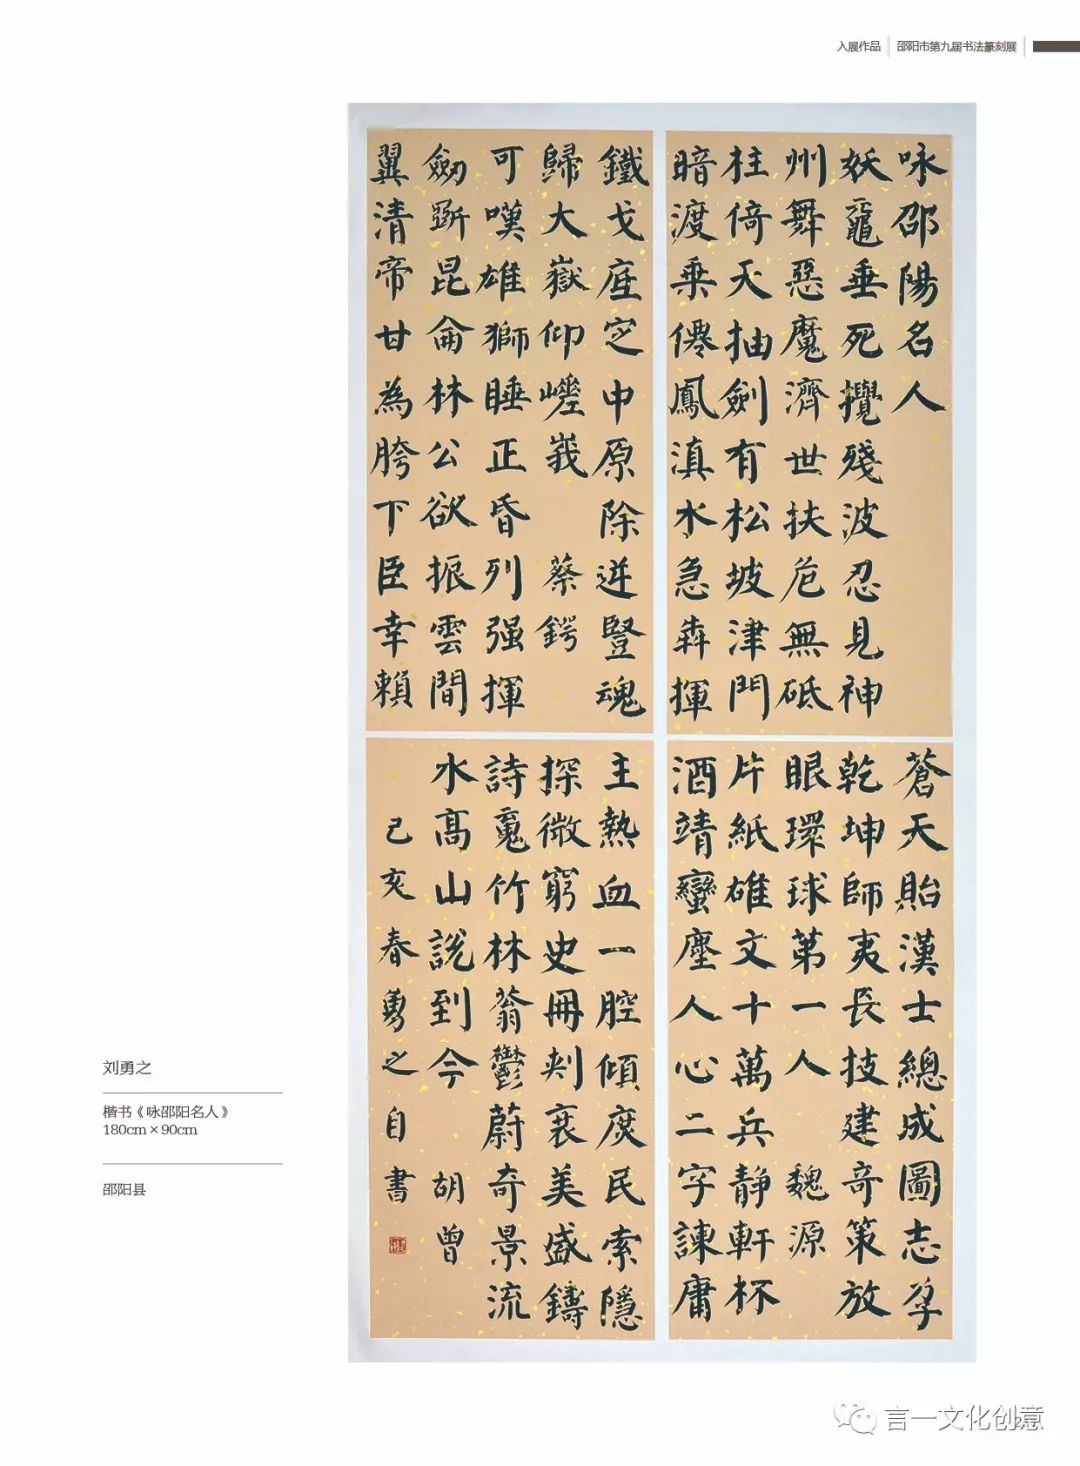 入展作品 邵阳市第九届书法篆刻展
咏邵陽名人
妖龍垂死攪殘波忍見神
州舞惡魔濟世扶危無砥
柱倚天抽劍有松坡津門
暗渡乘僊鳳滇水急犇揮
鐵戈底定中原除逆豎魂
歸大嶽仰嵯峩 蔡鍔
可嘆雄獅睡正昏列强揮
劒斵昆侖林公欲振雲間
翼清帝甘為胯下臣幸賴
蒼天貽漢士總成圖志孚
乾坤師夷長技建奇策放
眼環球第一人 魏源
片紙雄文十萬兵靜軒杯
酒靖蠻塵人心二字諫庸
主熱血一腔傾庶民索隱
探微窮史冊刺衰美盛鑄
詩魂竹林蓊鬱蔚奇景流
水高山說到今 胡曾
己亥春勇之自書
刘勇之
楷书《咏邵阳名人》
180cm×90cm
邵阳县
言一文化创意